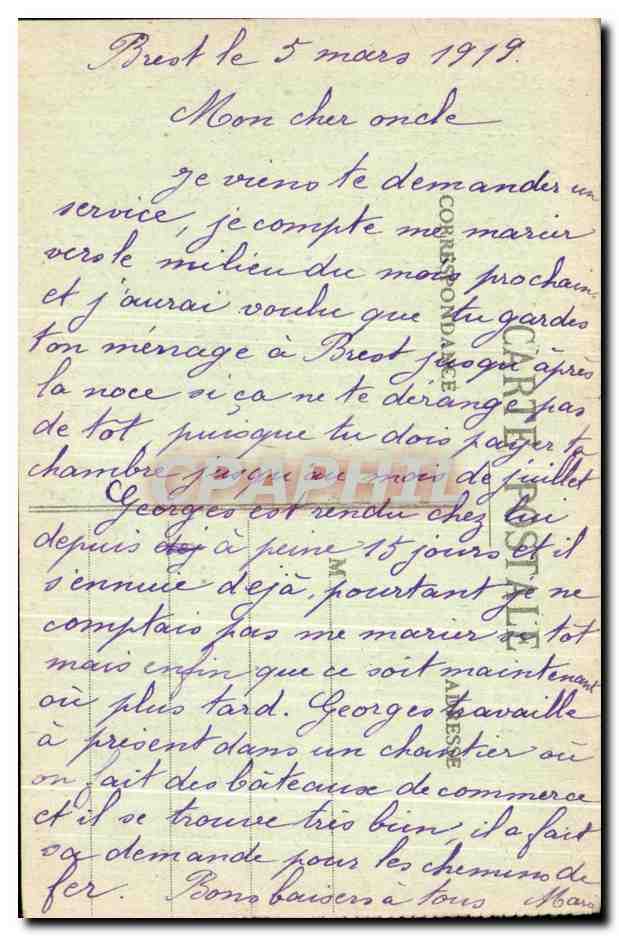 Brest le 5 mars 1919.
Mon cher oncle
Je viens te demander un
service, je compte me marier
vers le milieu du mois prochain.
et j'aurai voulu que tu gardes
ton ménage à Brest jusqu'àprès
la noce si ça ne te dérange pas
de tôt puisque tu dois payer ta
chambre jusqu'au mois de juillet
Georges est rendu chez lui
depuis dej à peine 15 jours et il
s'ennuie dejà, pourtant je ne
comptais pas me marier si tôt
mais enfin que ce soit maintenant
où plus tard. Georges travaille
à présent dans un chantier où
on fait des bâteaux de commerce
et il se trouve très bien, il a fait
sa demande pour les chemins de
fer. Bons baisers à tous
CARTE POSTALE
CORRESPONDANCE
ADRESSE
M
CPAPHIL